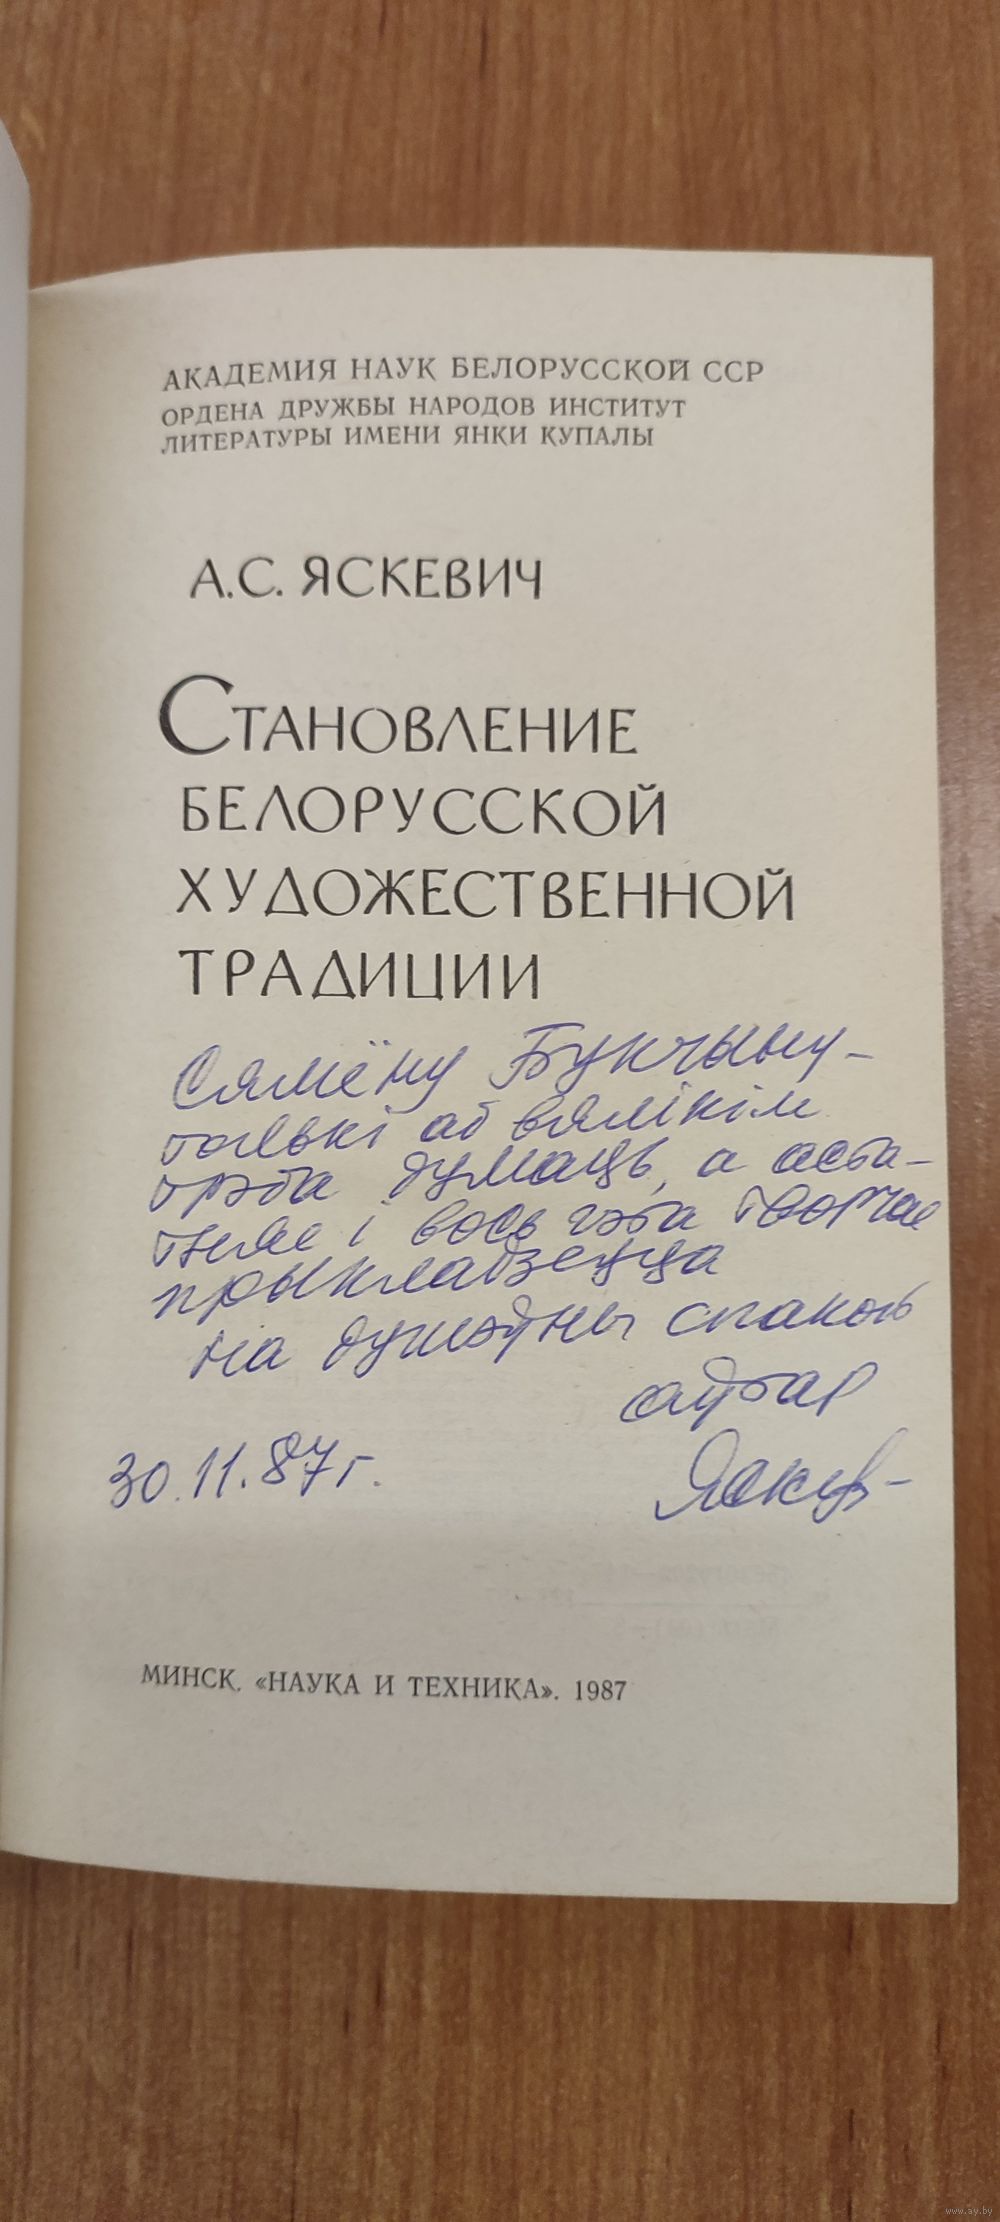 АКАДЕМИЯ НАУК БЕЛОРУССКОЙ ССР
ОРДЕНА ДРУЖБЫ НАРОДОВ ИНСТИТУТ
ЛИТЕРАТУРЫ ИМЕНИ ЯНКИ КУПАЛЫ
А.С. ЯСКЕВИЧ
СТАНОВЛЕНИЕ
БЕЛОРУССКОЙ
ХУДОЖЕСТВЕННОЙ
ТРАДИЦИИ
Сямёну Букчыну –
толькі аб вялікім
трэба думаць, а аста-
тняе і вось гэта творчае
прыкладзецца
на душэўны спакой
аўтар
30.11.87 г.
МИНСК. «НАУКА И ТЕХНИКА». 1987
www.ay.by